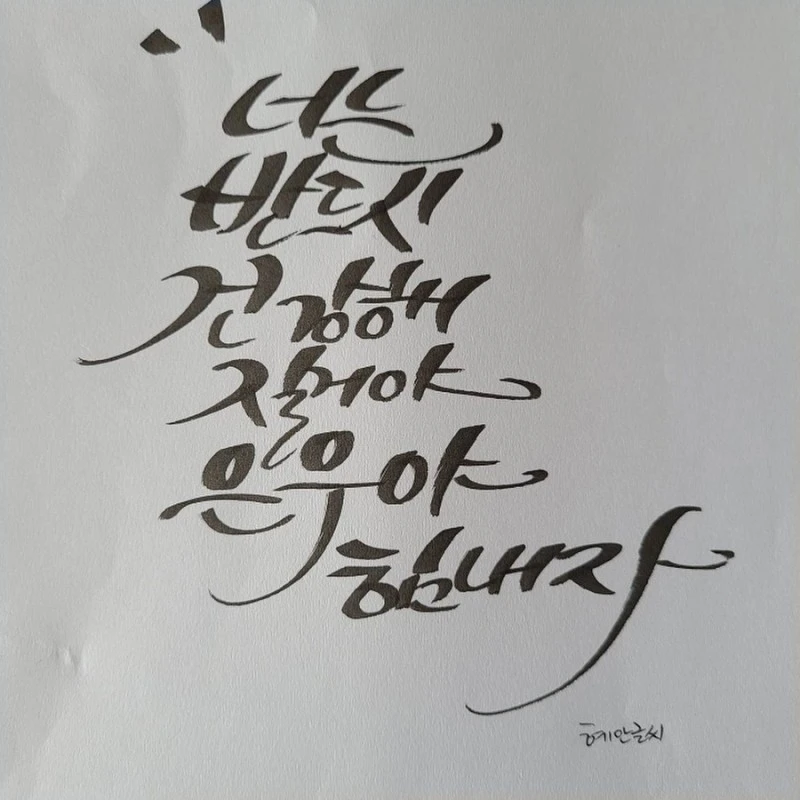 “
너는
반드시
건강해
질거야
은우야
힘내자
혜안글씨